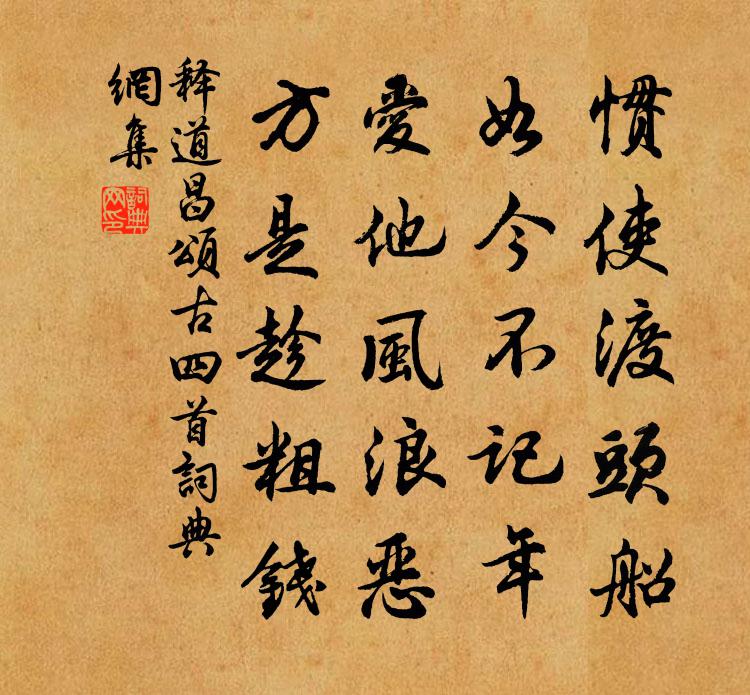 慣使渡頭船
如今不記年
愛他風浪惡
方是趁粗錢
释道昌頌古四首詞典
網集
詞典網印